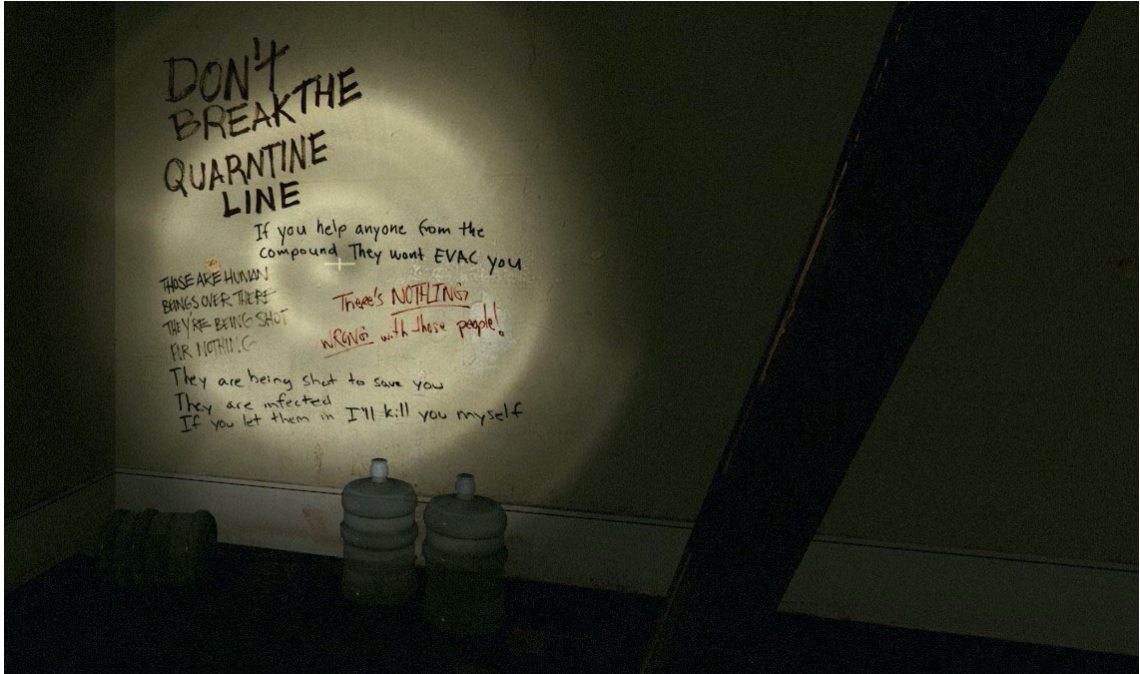 DON'T
BREAK THE
QUARNTINE
LINE
If you help anyone from the
compound They wont EVAC you
THOSE ARE HUMAN
BEINGS OVER THERE
THEY'RE BEING SHOT
FOR NOTHING
There's NOTHING
WRONG with those people!
They are being shot to save you
They are infected
If you let them in I'll kill you myself